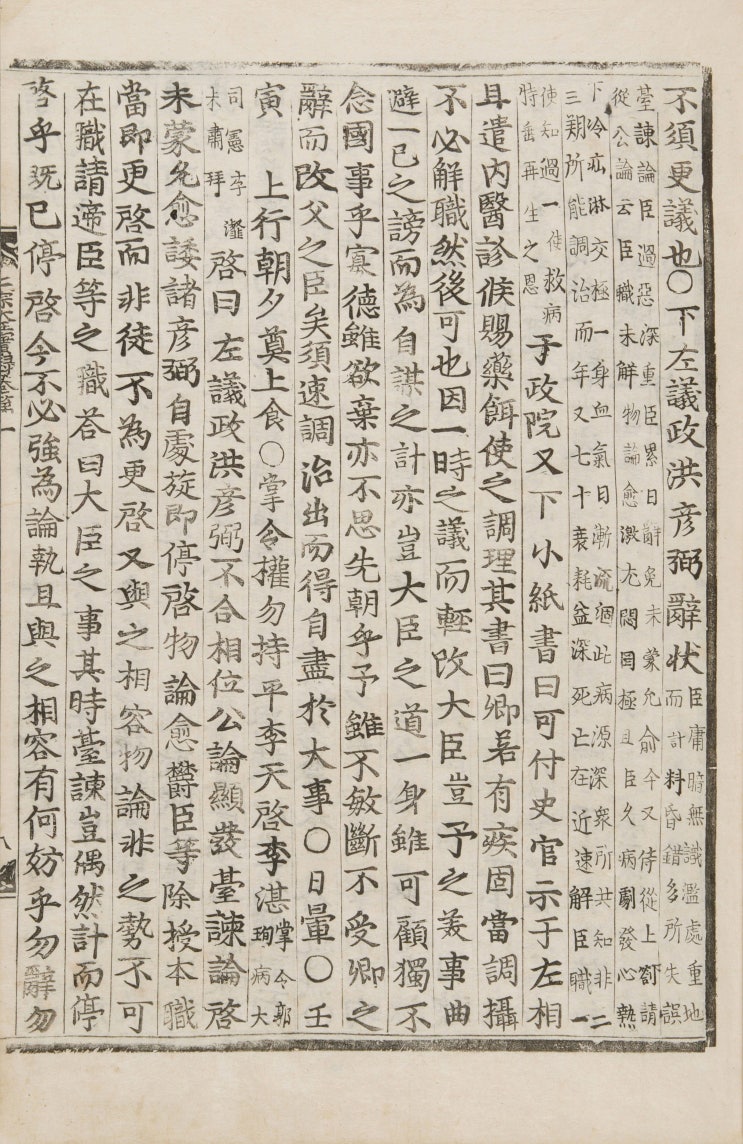 不須更議也○下左議政洪彦弼辭狀臣庸暗無識濫處重地
而計料昏錯多所失誤
臺諫論臣過惡深重臣累日辭免未蒙允俞今又侍從上箚請
從公論云臣職未解物論愈激尤悶罔極且臣久病劇發心熱
下冷疝淋交極一身血氣日漸凘涸此病源深衆所共知非二
三朔所能調治而年又七十衰耗益深死亡在近速解臣職一
使知過一使救病
特垂再生之恩
于政院又下小紙書曰可付史官示于左相
且遣內醫診候賜藥餌使之調理其書曰卿若有疾固當調攝
不必解職然後可也因一時之議而輕改大臣豈予之美事曲
避一已之謗而為自謀之計亦豈大臣之道一身雖可顧獨不
念國事乎寡德雖欲棄亦不思先朝乎予雖不敏斷不受卿之
辭而改父之臣矣須速調治出而得自盡於大事○日暈○壬
寅 上行朝夕奠上食○掌令權勿持平李天啓李湛掌令郭
珣病大
司憲李瀣
未肅拜
啓曰左議政洪彦弼不合相位公論顯發臺諫論啓
未蒙允愈諉諸彦弼自處旋即停啓物論愈鬱臣等除授本職
當即更啓而非徒不為更啓又與之相容物論非之勢不可
在職請遞臣等之職答曰大臣之事其時臺諫豈偶然計而停
啓乎既已停啓今不必強為論執且與之相容有何妨乎勿辭勿